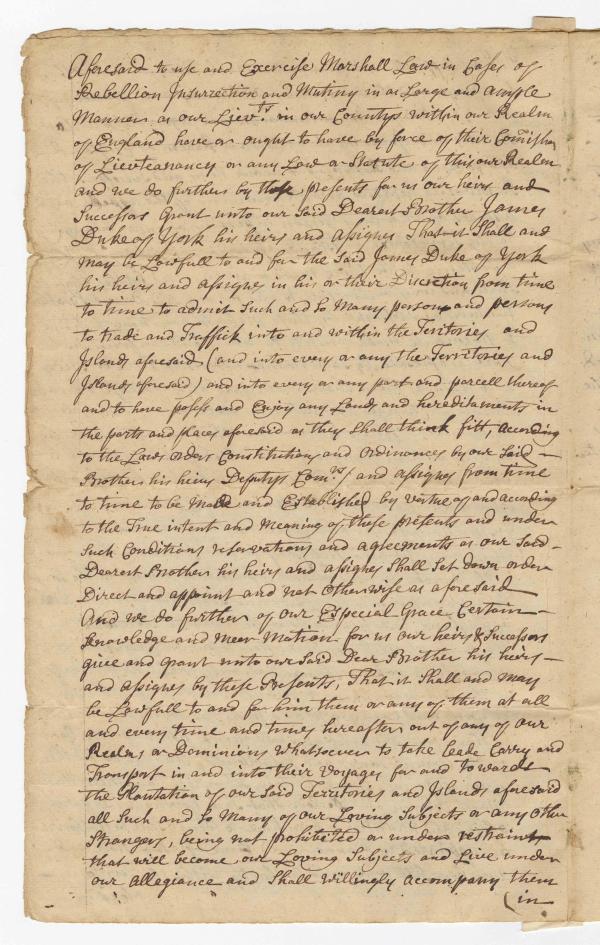 Aforesaid to use and Exercise Marshall Law in Cases of
Rebellion Insurrection and Mutiny in as Large and ample
Manner as our Lievts. in our Countys within our Realm
of England have or ought to have by force of their Comission
of Lievtenancy or any Law or Statute of this our Realm
and we do further by these presents for us our heirs and
Successors Grant unto our Said Dearest Brother James
Duke of York his heirs and assignes That it Shall and
may be Lawfull to and for the Said James Duke of York
his heirs and assignes in his or their Discretion from time
to time to admit Such and So Many person and persons
to trade and Traffick into and within the Teritories and
Islands aforesaid (and into every or any the Territories and
Islands aforesaid) and into every or any part and parcell thereof
and to have posess and Enjoy any Lands and hereditaments in
the parts and places aforesaid as they Shall think fitt, according
to the Laws orders Constitutions and ordinances by our Said —
Brother his heirs Deputys Comrs/ and assignes from time
to time to be Made and Established by virtue of and according
to the True intent and Meaning of these presents and under
Such Conditions reservations and agreements as our Said —
Dearest Brother his heirs and assignes Shall Set down order
Direct and appoint and not Otherwise as aforesaid
And we do further of our Especial Grace Certain —
Knowledge and meer Motion for us our heirs & Successors
give and grant unto our Said Dear Brother his heirs —
and assignes by these Presents, That it Shall and may
be Lawfull to and for him them or any of them at all
and every time and times hereafter out of any of our
Realms or Dominions whatsoever to take leade Carry and
Transport in and into their Voyages for and Towards
the Plantation of our Said Territories and Islands aforesaid
all Such and So Many of our Loving Subjects or any other
Strangers, being not prohibitted or under restraint
that will become our Loving Subjects and Live under
our allegiance and Shall willingly accompany them
(in